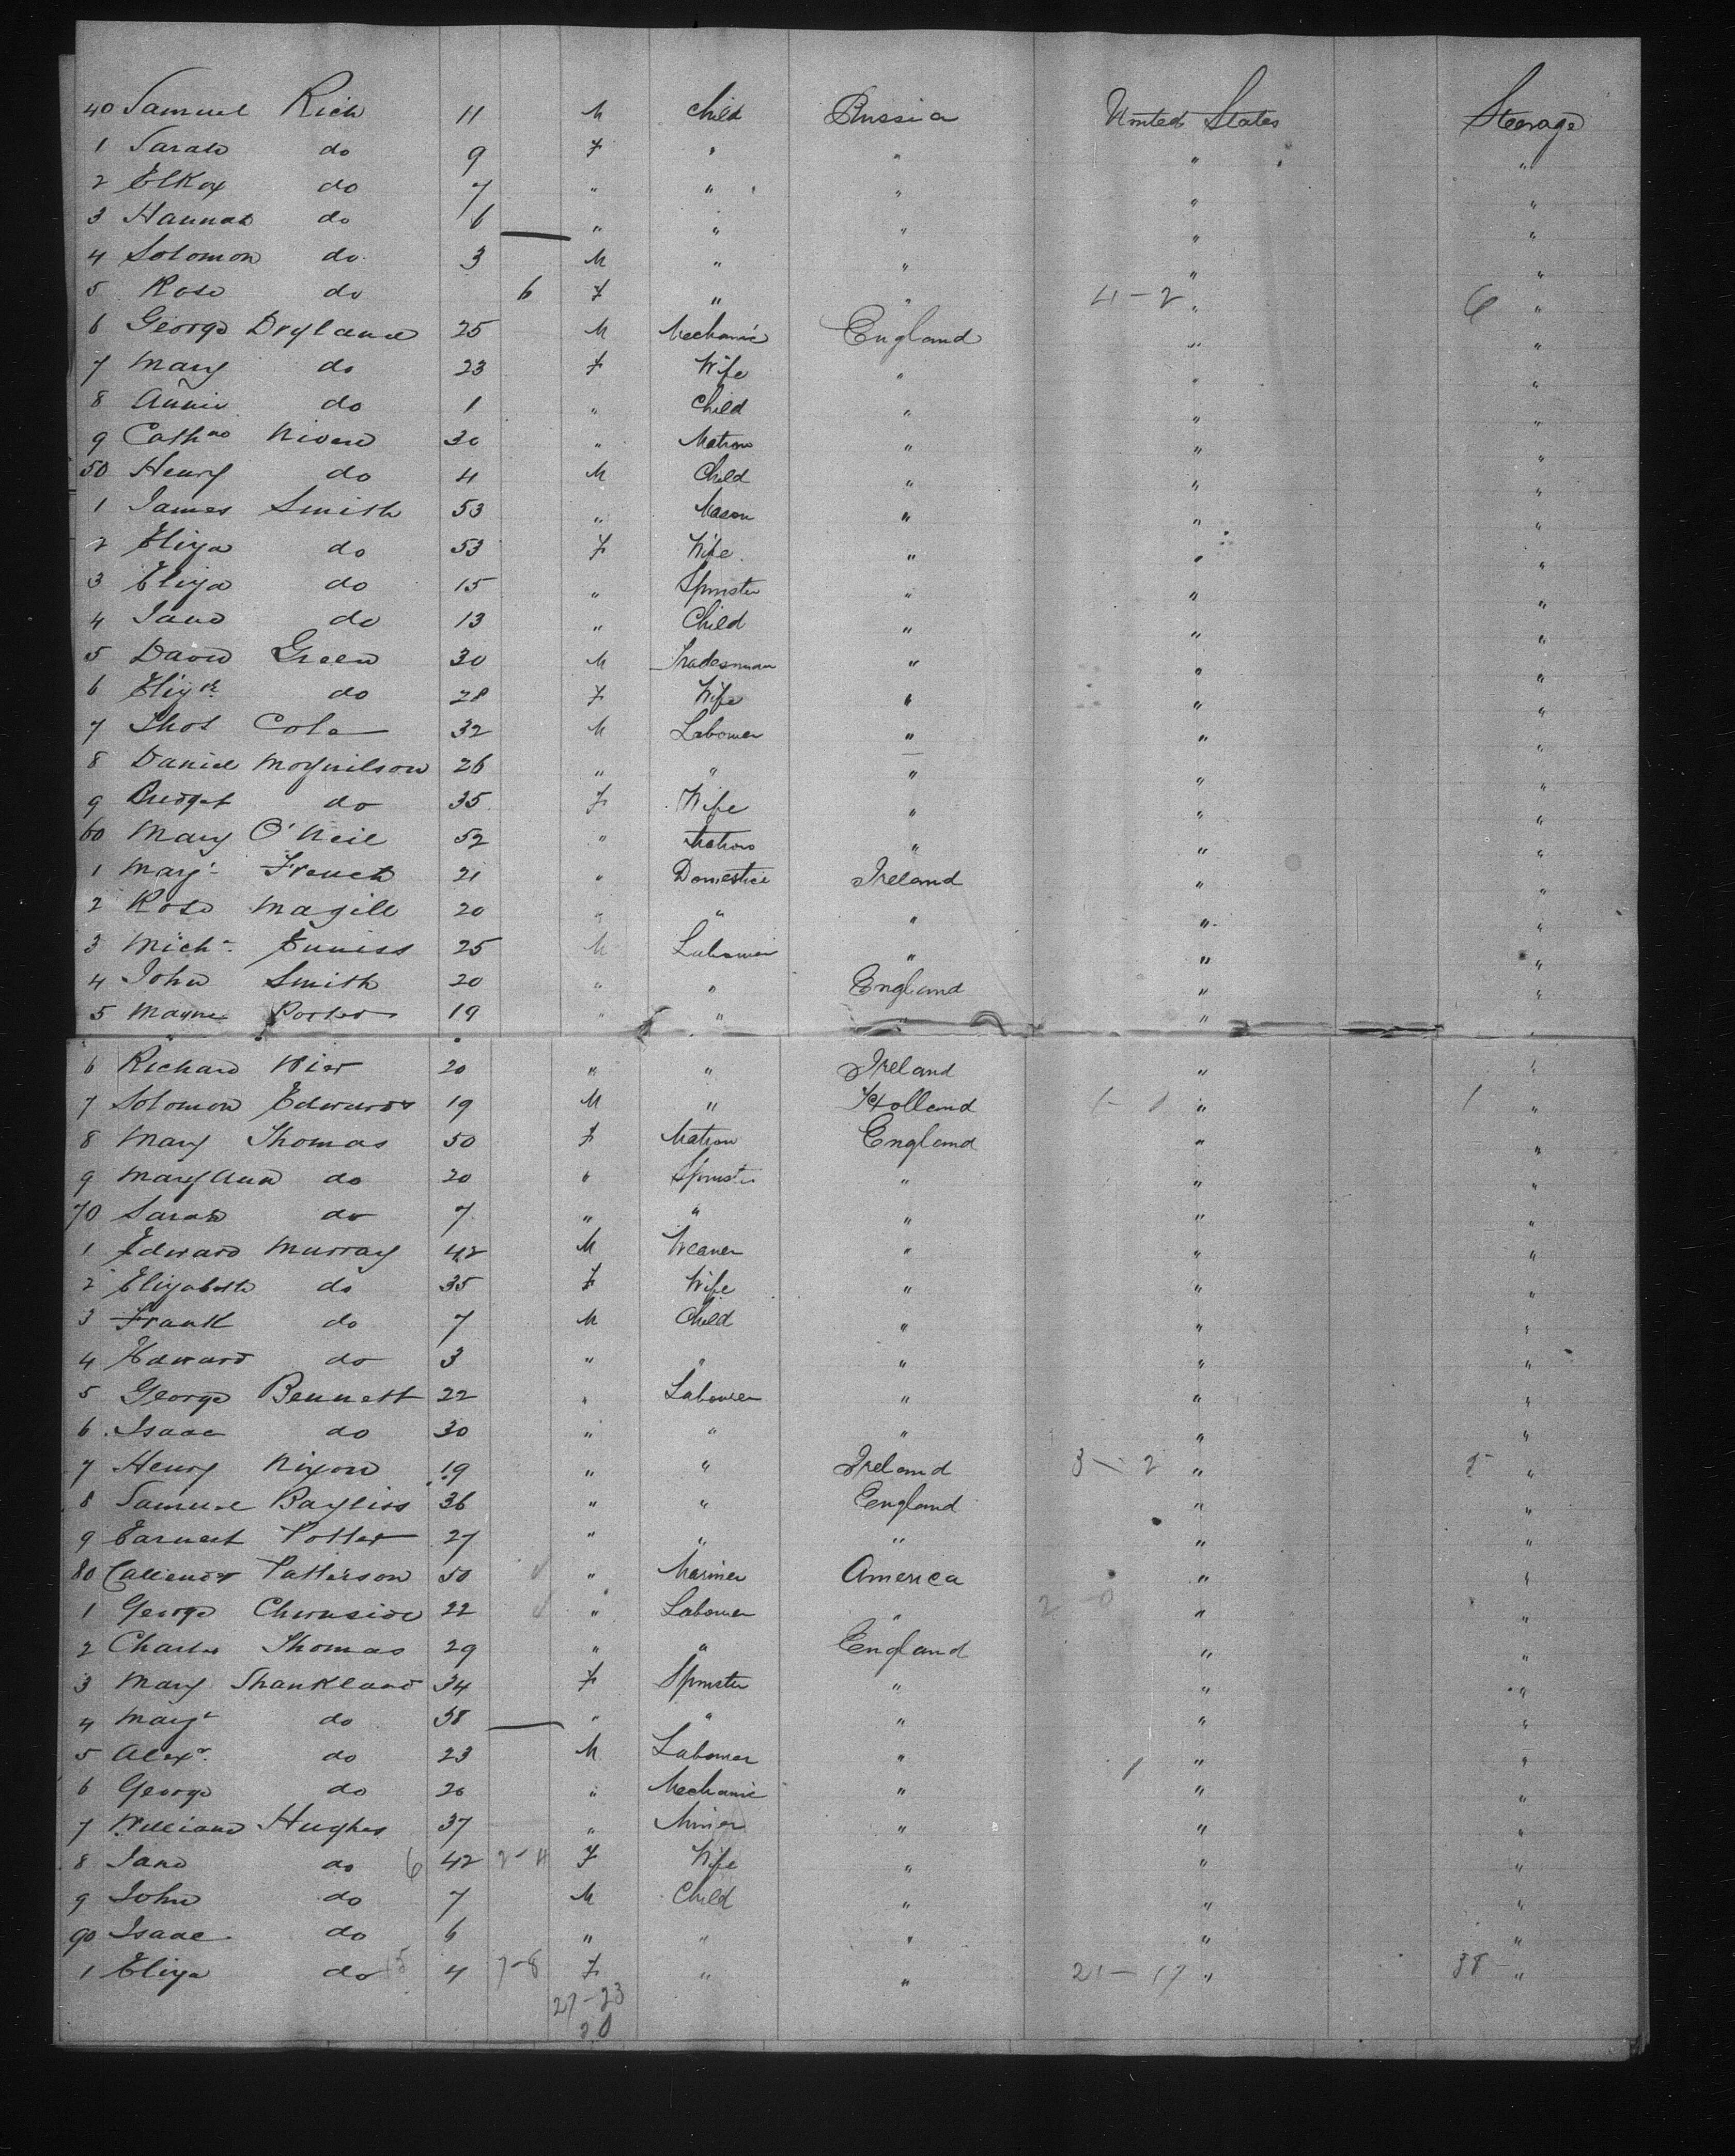 40 Samuel Rich 11 M Child Russia United States Steerage
1 Sarah do 9 F " " " "
2 do 7 " " " " "
3 Hannah do 6 " " " " "
4 Solomon do 3 M " " " "
5 Rose do 6 F " " 4-2 " 6 "
6 George Dryland 25 M Mechanic England " "
7 Mary do 23 F Wife " " "
8 Annie do 1 " Child " " "
9 Cathne Niven 30 " Matron " " "
50 Henry do 4 M Child " " "
1 James Smith 53 " Mason " " "
2 Eliza do 53 F Wife " " "
3 Eliza do 15 " Spinster " " "
4 Jane do 13 " Child " " "
5 David Green 30 M Tradesman " " "
6 Elizth do 28 F Wife " " "
7 Thos Cole 32 M Labourer " " "
8 Daniel 26 " " " " "
9 Bridget do 35 F Wife " " "
60 Mary O'Neil 52 " Matron " " "
1 Margt French 21 " Domestic Ireland " "
2 Rose Magill 20 " " " " "
3 Michl Enniss 25 M Labourer " " "
4 John Smith 20 " " England " "
5 Porter 19 " " " " "
6 Richard Wier 20 " " Ireland " "
7 Solomon Edwards 19 M " Holland 1- " 1 "
8 Mary Thomas 50 F Matron England " "
9 Mary Ann do 20 " Spinster " " "
70 Sarah do 7 " " " " "
1 Edward Murray 42 M Weaver " " "
2 Elizabeth do 35 F Wife " " "
3 Frank do 7 M Child " " "
4 Edward do 3 " " " " "
5 George Bennett 22 " Labourer " " "
6 Isaac do 30 " " " " "
7 Henry Nixon 19 " " Ireland 3-2 " "
8 Samuel Bayliss 36 " " England " "
9 Earnest Potter 27 " " " " "
80 Callender Patterson 50 " Mariner America " "
1 George Chirnside 22 " Labourer " 2 0 " "
2 Charles Thomas 29 " " England " "
3 Mary Shankland 34 F Spinster " " "
4 Margt do 38 " " " " "
5 Alexr do 23 M Labourer " " "
6 George do 26 " Mechanic " " "
7 William Hughes 37 " Miner " " "
8 Jane do 6 42 2-4 F Wife " " "
9 John do 7 M Child " " "
90 Isaac do 6 " " " " "
1 Eliza do 15 4 7-8 F " " 21-17 " 38 "
27-23
20